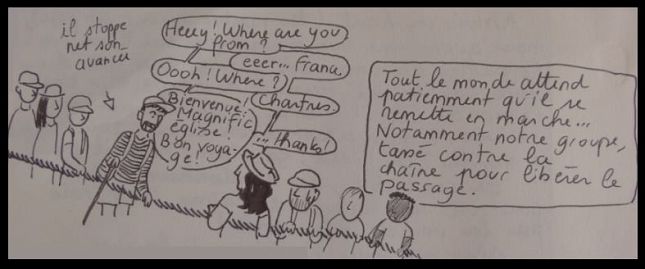 il stoppe
net son
avancée
Heeey! Where are you
from?
eeer... France.
Oooh! Where?
Chartres.
Bienvenue!
Magnific
église!
Bon voya-
ge!
... thanks!
Tout le monde attend
patiemment qu'il se
remette en marche...
Notamment notre groupe,
tassé contre la
chaîne pour libérer le
passage.